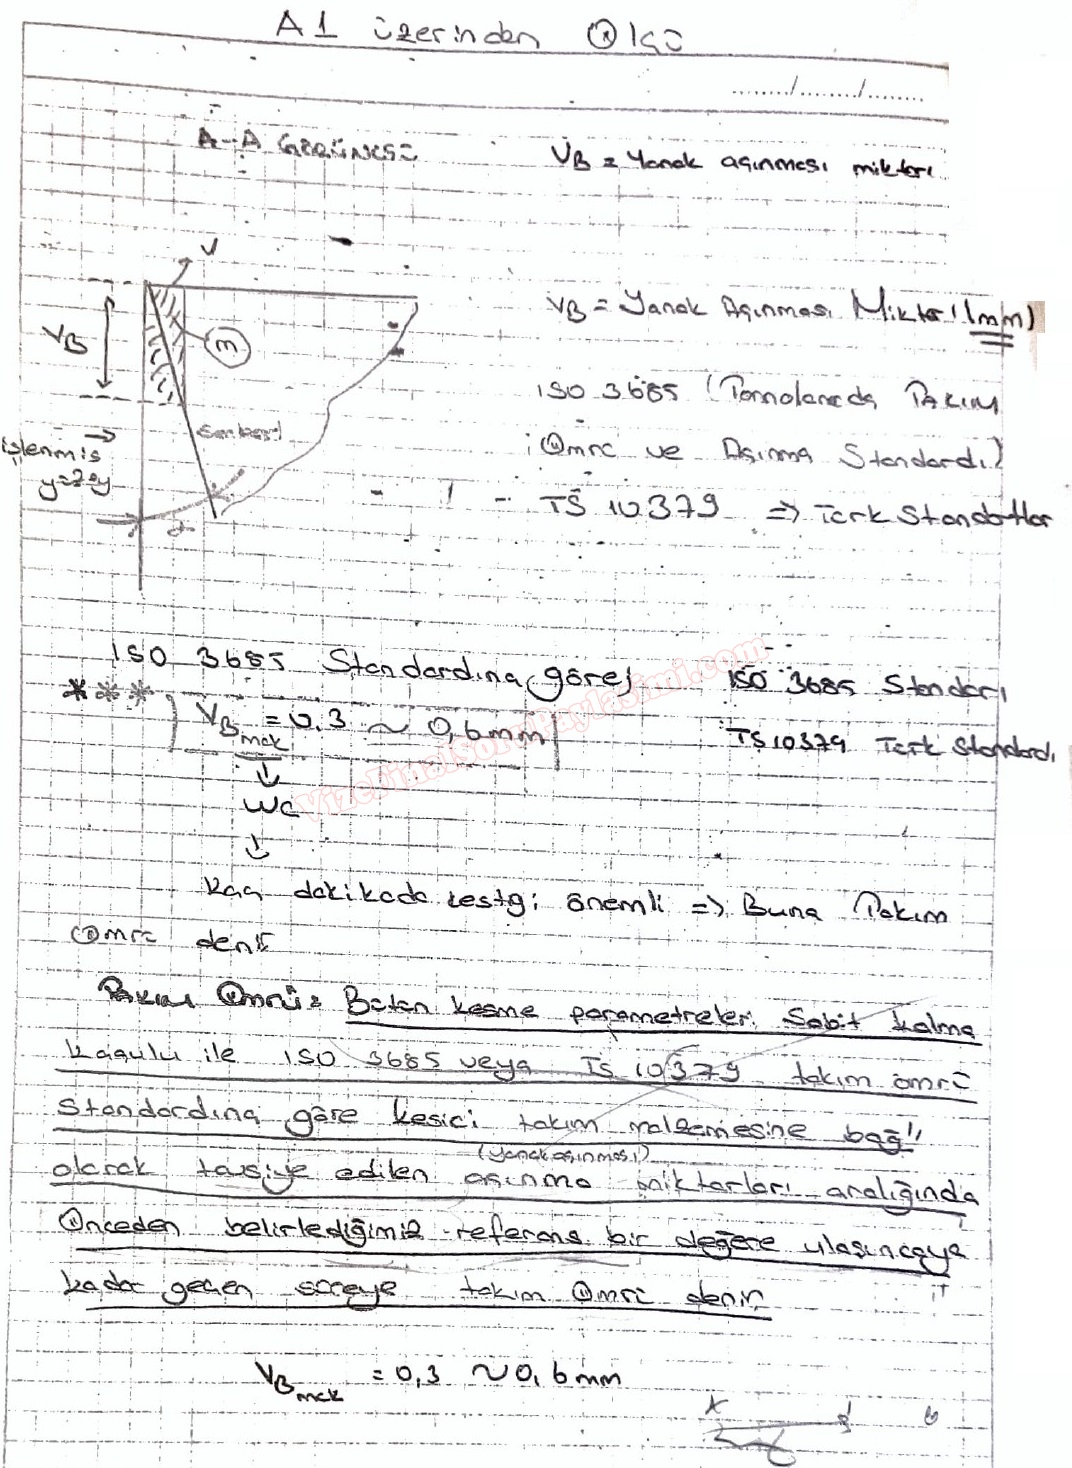 A1 üzerinden Ölçü
...../...../.....
A-A GÖRÜNÜŞÜ
VB = Yanak aşınması miktarı
V
VB
m
VB = Yanak Aşınması Miktarı (mm)
ISO 3685 (Tornalamada TAKIM
Ömrü ve Aşınma Standardı)
TS 10379 => Türk Standartlar
işlenmiş
yüzey
Serbest
α
ISO 3685 Standardına göre;
ISO 3685 Standarı
***
VBmak = 0.3 ~ 0,6mm
TS10379 Türk Standardı
WC
Kaç dakikada kestiği önemli => Buna Takım
Ömrü denir
TAKIM Ömrü = Bütün kesme parametreleri Sabit kalma
koşulu ile ISO 3685 veya TS 10379 takım ömrü
standardına göre kesici takım malzemesine bağlı
(yanak aşınması)
olarak tavsiye edilen aşınma miktarları aralığında
Önceden belirlediğimiz referans bir değere ulaşıncaya
kadar geçen süreye takım Ömrü denir
VBmak = 0,3 ~ 0,6mm
VizeFinalSoruPaylasimi.com